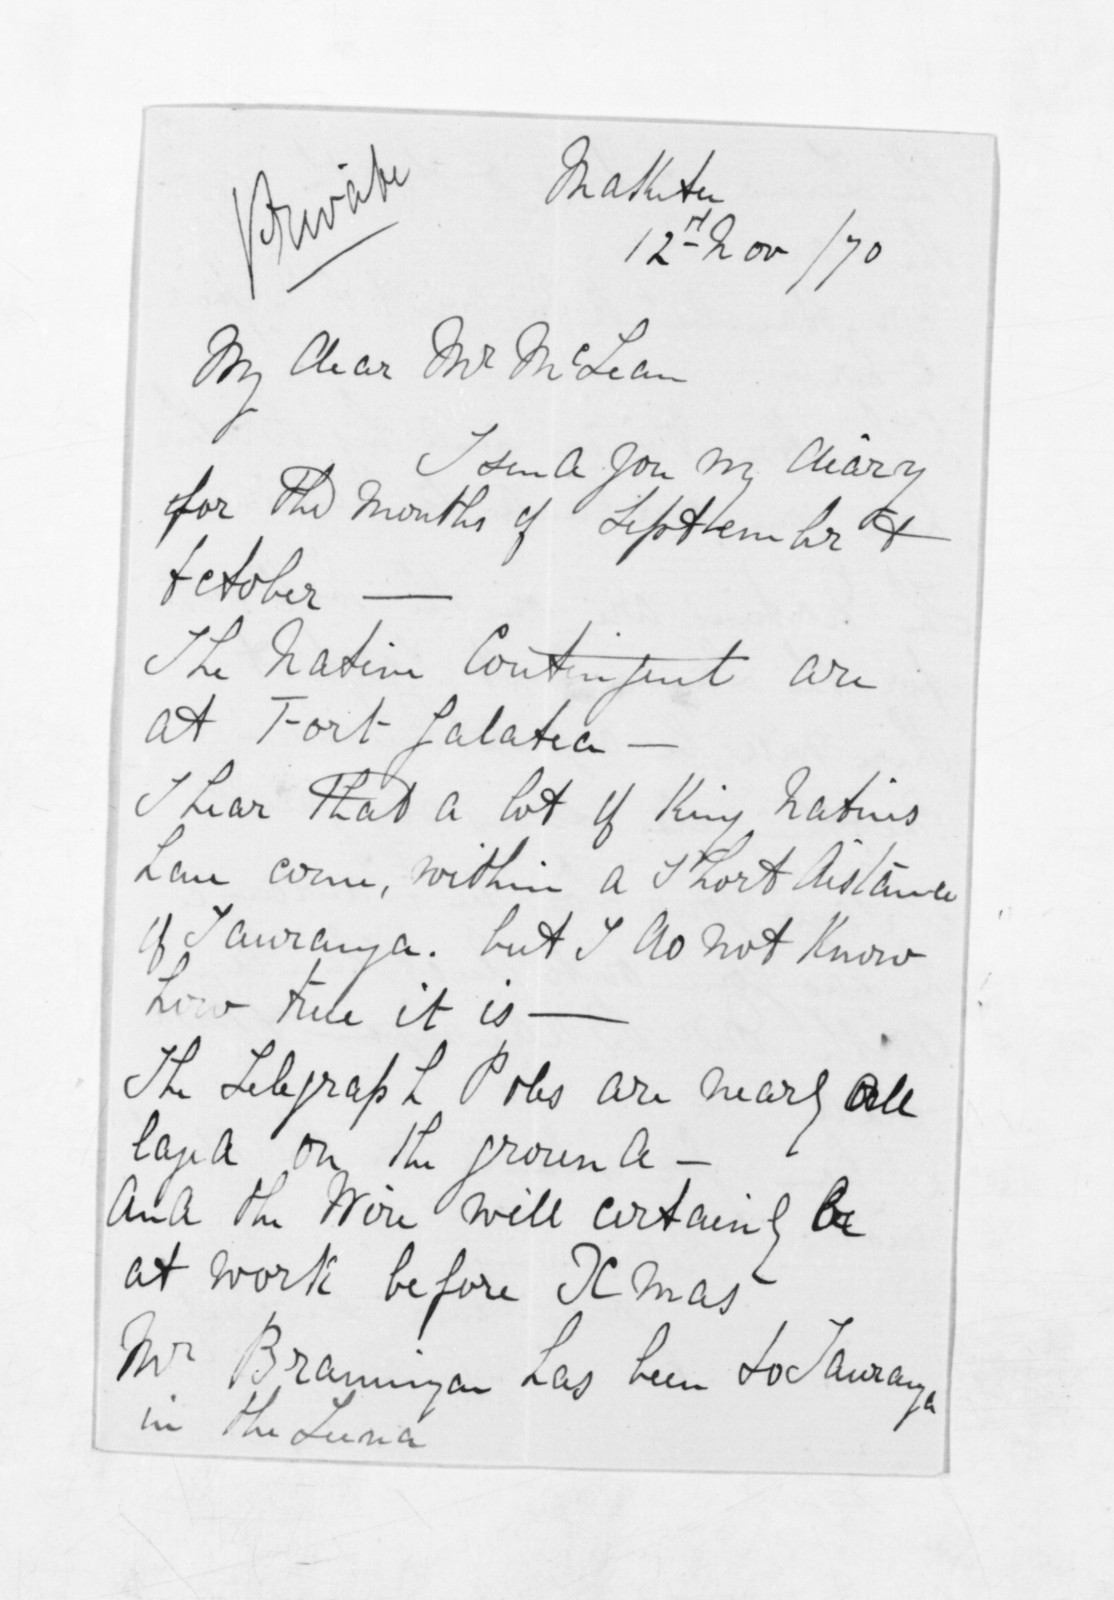 Private
Maketu
12th Nov /70
My dear Mr McLean
I send you my diary
for the months of September &
October —
The Native Contingent are
at Fort Galatea —
I hear that a lot of King Natives
have come, within a short distance
of Tauranga. but I do not know
how true it is —
The Telegraph Poles are nearly all
layed on the ground —
and the Wire will certainly be
at work before Xmas
Mr Brannigan has been to Tauranga
in the Luna